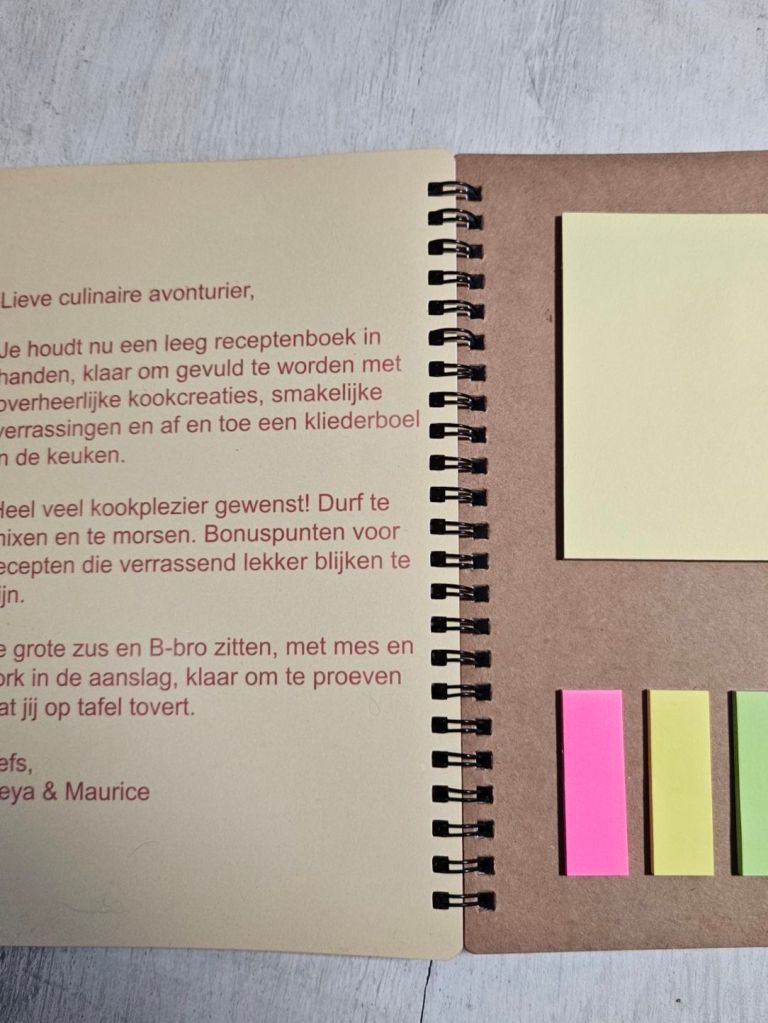 Lieve culinaire avonturier,
Je houdt nu een leeg receptenboek in
handen, klaar om gevuld te worden met
overheerlijke kookcreaties, smakelijke
verrassingen en af en toe een kliederboel
n de keuken.
Heel veel kookplezier gewenst! Durf te
mixen en te morsen. Bonuspunten voor
ecepten die verrassend lekker blijken te
ijn.
e grote zus en B-bro zitten, met mes en
ork in de aanslag, klaar om te proeven
at jij op tafel tovert.
efs,
eya & Maurice